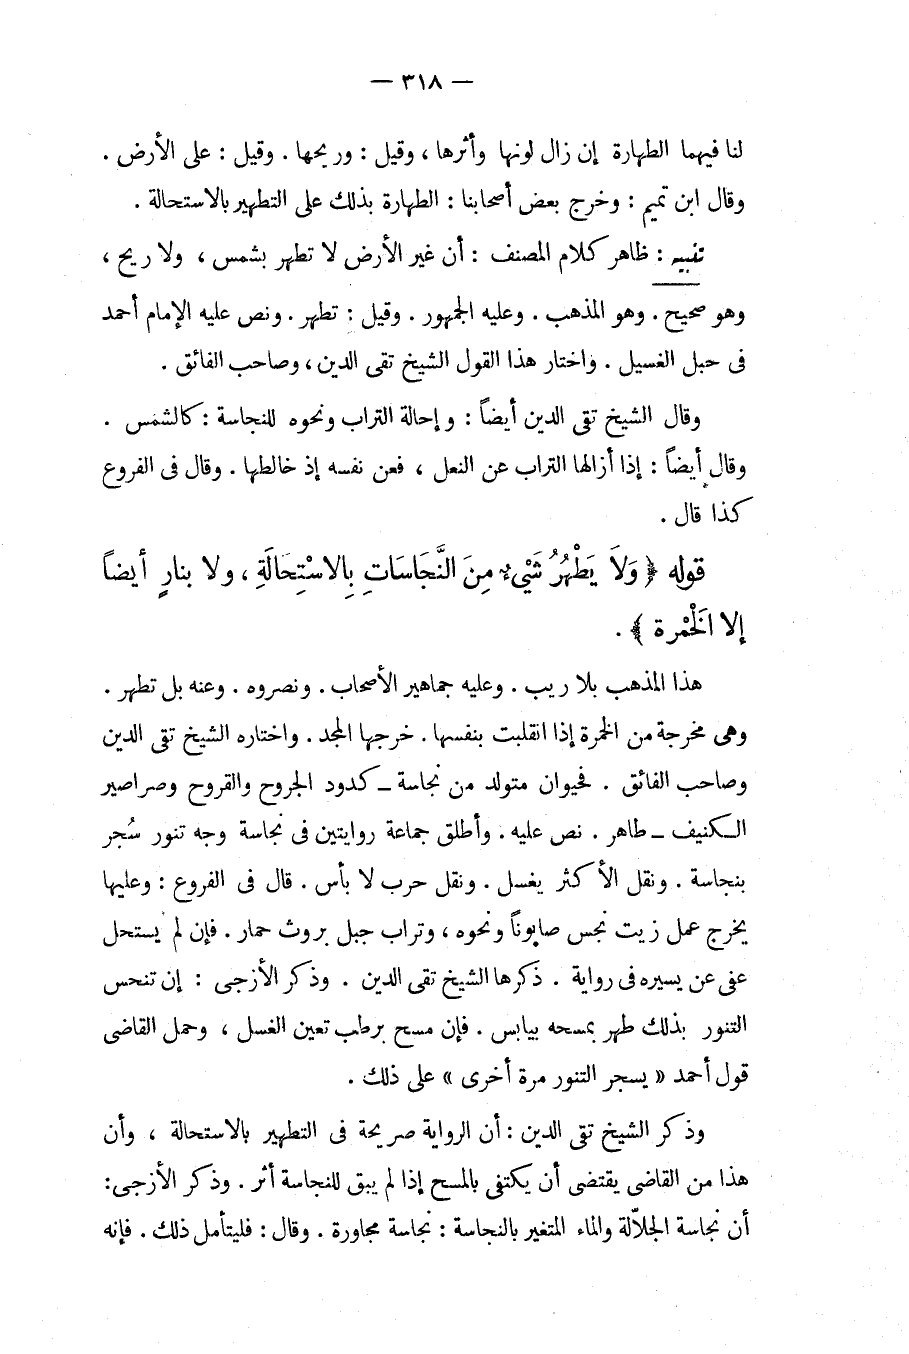 — ٣١٨ —
لنا فيهما الطهارة إن زال لونها وأثرها ، وقيل : وريحها . وقيل : على الأرض .
وقال ابن تميم : وخرج بعض أصحابنا : الطهارة بذلك على التطهير بالاستحالة .
تنبيه : ظاهر كلام المصنف : أن غير الأرض لا تطهر بشمس ، ولا ريح ،
وهو صحيح . وهو المذهب . وعليه الجمهور . وقيل : تطهر . ونص عليه الإمام أحمد
فى حبل الغسيل . واختار هذا القول الشيخ تقى الدين ، وصاحب الفائق .
وقال الشيخ تقى الدين أيضاً : وإحالة التراب ونحوه للنجاسة : كالشمس .
وقال أيضاً : إذا أزالها التراب عن النعل ، فعن نفسه إذ خالطها . وقال فى الفروع
كذا قال .
قوله ﴿ وَلاَ يَطْهُرُ شَيْءٌ مِنَ النَّجَاسَاتِ بِالاسْتِحَالَةِ ، ولا بنارٍ أيضاً
إلا الْخَمْرة ﴾ .
هذا المذهب بلا ريب . وعليه جماهير الأصحاب . ونصروه . وعنه بل تطهر .
وهى مخرجة من الخمرة إذا انقلبت بنفسها . خرجها المجد . واختاره الشيخ تقى الدين
وصاحب الفائق . فحيوان متولد من نجاسة ــ كدود الجروح والقروح وصراصير
الكنيف ــ طاهر . نص عليه . وأطلق جماعة روايتين فى نجاسة وجه تنور سُجر
بنجاسة . ونقل الأكثر يغسل . ونقل حرب لا بأس . قال فى الفروع : وعليها
يخرج عمل زيت نجس صابوناً ونحوه ، وتراب جبل بروث حمار . فإن لم يستحل
عفى عن يسيره فى رواية . ذكرها الشيخ تقى الدين . وذكر الأزجى : إن تنجس
التنور بذلك طهر بمسحه بيابس . فإن مسح برطب تعين الغسل ، وحمل القاضى
قول أحمد « يسجر التنور مرة أخرى » على ذلك .
وذكر الشيخ تقى الدين : أن الرواية صريحة فى التطهير بالاستحالة ، وأن
هذا من القاضى يقتضى أن يكتفى بالمسح إذا لم يبق للنجاسة أثر . وذكر الأزجى :
أن نجاسة الجلاّلة والماء المتغير بالنجاسة : نجاسة مجاورة . وقال : فليتأمل ذلك . فإنه